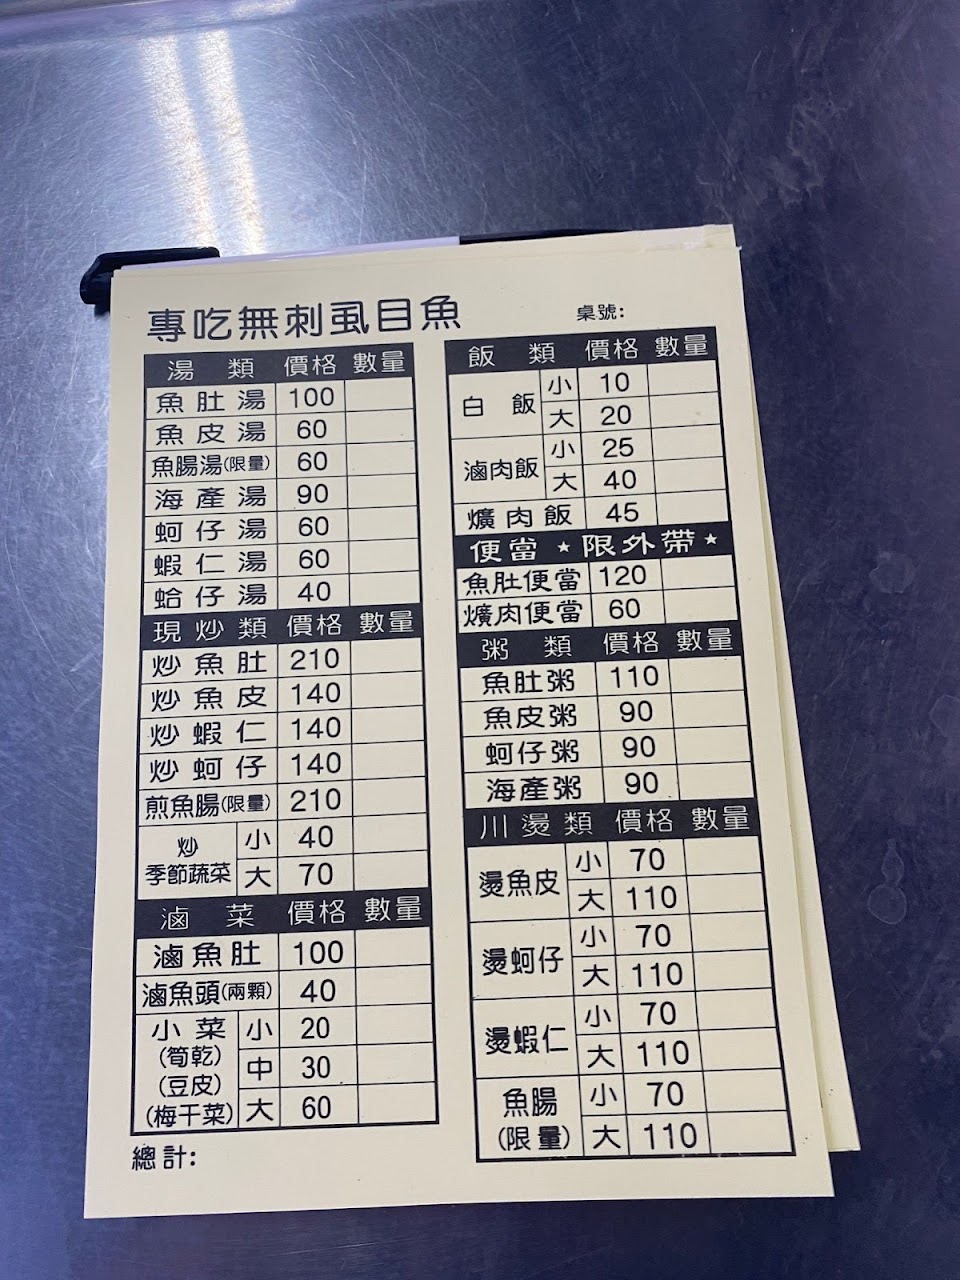 專吃無刺虱目魚
桌號:
湯 類 價格 數量
魚肚湯 100
魚皮湯 60
魚腸湯(限量) 60
海產湯 90
蚵仔湯 60
蝦仁湯 60
蛤仔湯 40
現炒類 價格 數量
炒魚肚 210
炒魚皮 140
炒蝦仁 140
炒蚵仔 140
煎魚腸(限量) 210
炒季節蔬菜 小 40
大 70
滷 菜 價格 數量
滷魚肚 100
滷魚頭(兩顆) 40
小菜 小 20
(筍乾)
(豆皮) 中 30
(梅干菜) 大 60
總計:
飯 類 價格 數量
白 飯 小 10
大 20
滷肉飯 小 25
大 40
爌肉飯 45
便當 ★限外帶★
魚肚便當 120
爌肉便當 60
粥 類 價格 數量
魚肚粥 110
魚皮粥 90
蚵仔粥 90
海產粥 90
川燙類 價格 數量
燙魚皮 小 70
大 110
燙蚵仔 小 70
大 110
燙蝦仁 小 70
大 110
魚腸 小 70
(限量) 大 110